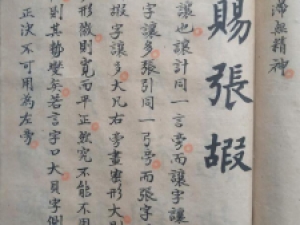 滯無精神
賜張嘏
讓也讓計同一言旁而讓字讓
字讓多張引同一弓旁而張字
嘏字讓多大凡右旁畫密形大則
形微則寬而平正然究不能不用
則其勢變矣若言字口大貝字側
正次不可用為左旁